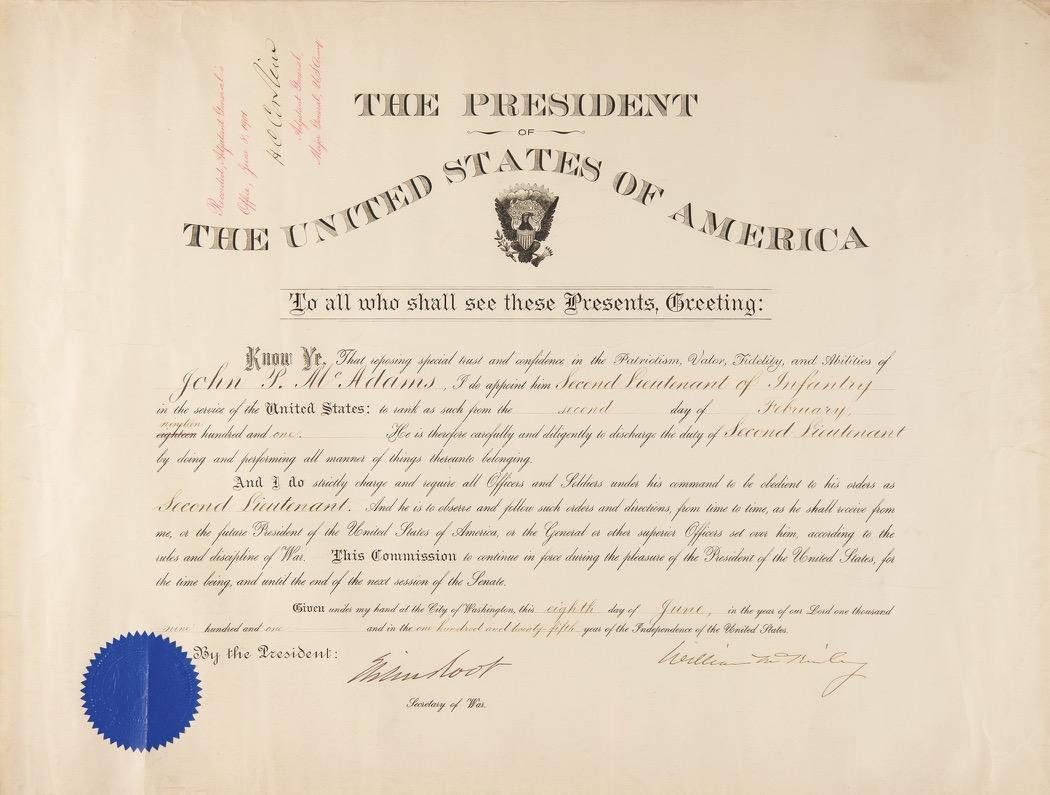 Recorded, Adjutant General's
Office, June 8, 1901
Adjutant General,
Major General, U.S. Army
THE PRESIDENT
OF
THE UNITED STATES OF AMERICA
To all who shall see these Presents, Greeting:
Know Ye, That reposing special trust and confidence in the Patriotism, Valor, Fidelity, and Abilities of
John P. McAdams, I do appoint him Second Lieutenant of Infantry
in the service of the United States: to rank as such from the second day of February,
nineteen
eighteen hundred and one. He is therefore carefully and diligently to discharge the duty of Second Lieutenant
by doing and performing all manner of things thereunto belonging.
And I do strictly charge and require all Officers and Soldiers under his command to be obedient to his orders as
Second Lieutenant. And he is to observe and follow such orders and directions, from time to time, as he shall receive from
me, or the future President of the United States of America, or the General or other superior Officers set over him, according to the
rules and discipline of War. This Commission to continue in force during the pleasure of the President of the United States, for
the time being, and until the end of the next session of the Senate.
Given under my hand at the City of Washington, this eighth day of June, in the year of our Lord one thousand
nine hundred and one and in the one hundred and twenty-fifth year of the Independence of the United States.
By the President:
Elihu Root
William McKinley
Secretary of War.